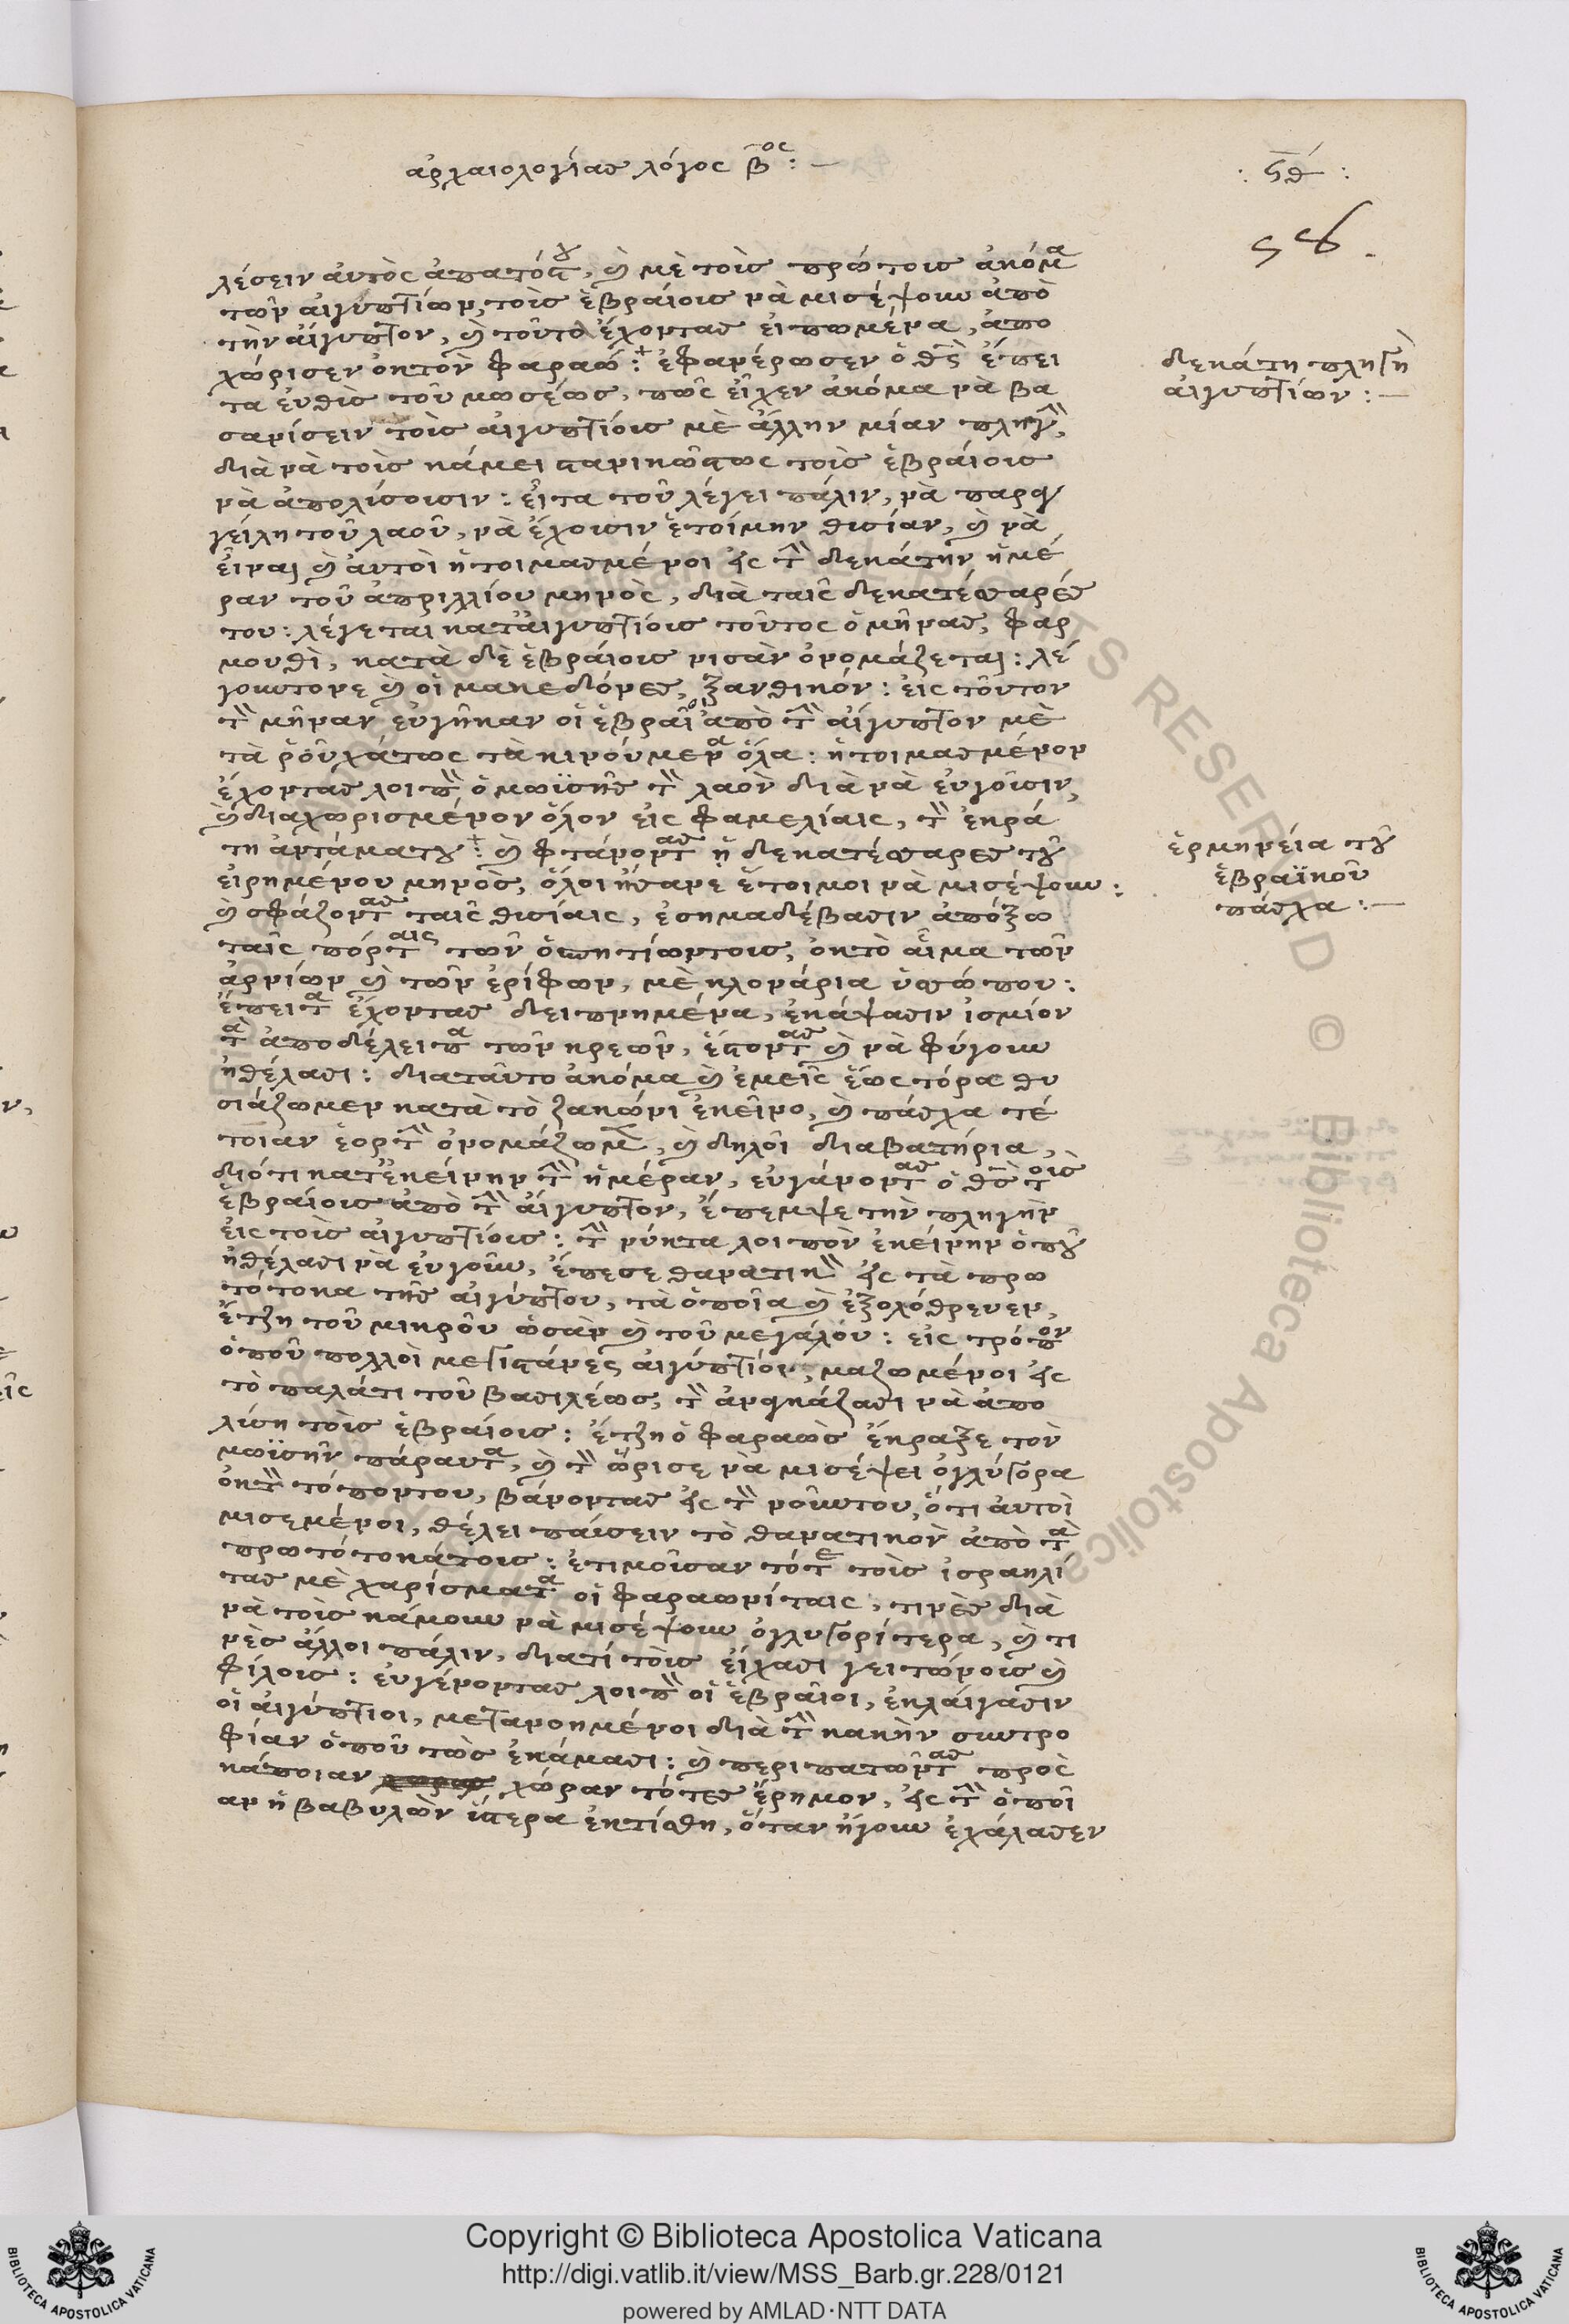 ἀρχαιολογίας λόγος β̅ος :—
: ϛθ :
58.
λέσειν ἀυτὸς ἀπατόστου, καὶ μὲ τοὶς πρώτοις ἀκόμα
τῶν ἀιγυπτίων, τοὶς ἑβραίοις νὰ μισέψουν ἀπὸ
τὴν ἀίγυπτον, καὶ τοῦτο ἔχοντας ἐιπωμένα, ἀπο
χώρισεν ὀκτὸν φαραώ :+ ἐφανέρωσεν ὁ θς̅ ἔπει
τα ἐυθὶς τοῦ μωσέως, πῶς εἶχεν ἀκόμα νὰ βα
σανίσειν τοὶς ἀιγυπτίοις μὲ ἄλλην μίαν πληγὴν,
διὰ νὰ τοὶς κάμει στανικῶς τως τοὶς ἑβραίοις
νὰ ἀπολίσοισιν : εἶτα τοῦ λέγει πάλιν, νὰ παραγ
γείλη τοῦ λαοῦ, νὰ ἔχοισιν ἑτοίμην θισίαν, καὶ νὰ
εἶναι καὶ ἀυτοὶ ἡτοιμασμένοι εἰς τὴν δεκάτην ἡμέ
ραν τοῦ ἀπριλλίου μηνὸς, διὰ ταῖς δεκατέσσαρές
του : λέγεται κατἀιγυπτίοις τοῦτος ὁ μῆνας, φαρ
μουθὶ, κατὰ δὲ ἑβραίοις νισὰν ὀνομάζεται : λέ
γουντονε καὶ οἱ μακεδόνες, ξανθικόν : εἰς τοῦτον
τὸν μῆναν ἐυγῆκαν οἱ ἑβραῖοι ἀπὸ τὴν ἀίγυπτον μὲ
τὰ ῥοῦχάτως τὰ κινούμενα ὅλα : ἡτοιμασμένον
ἔχοντας λοιπὸν ὁ μωϊσῆς τὸν λαὸν διὰ νὰ ἐυγοῖσιν,
καὶ διαχωρισμένον ὅλον εἰς φαμελίαις, τὸν ἐκρά
τη ἀντάματου :+ καὶ φτάνοντας ἡ δεκατέσσαρες τοῦ
εἰρημένου μηνὸς, ὅλοι ἤσανε ἕτοιμοι νὰ μισέψουν :
καὶ σφάζοντας ταῖς θισίαις, ἐσημαδέβασιν ἀπόξω
ταῖς πόρταις τῶν ὁσπητίωντοις, ὀκτὸ αἷμα τῶν
ἀρνίων καὶ τῶν ἐρίφων, μὲ κλονάρια ὑσώπου :
ἔπειτα ἔχοντας δειπνημένα, ἐκάψασιν ἰσμίον
τὰ ἀποδέλειπα τῶν κρεῶν, ἔστοντας καὶ νὰ φύγουν
ἠθέλασι : διαταῦτο ἀκόμα καὶ ἐμεῖς ἕως τόρα θυ
σιάζωμεν κατὰ τὸ ζακώνι ἐκεῖνο, καὶ πάσχα τέ
τοιαν ἑορτὴν ὀνομάζωμεν, καὶ δηλοῖ διαβατήρια,
διότι κατ᾽ἐκείνην τὴν ἡμέραν, ἐυγάνοντας ὁ θς̅ τοὶς
ἑβραίοις ἀπὸ τὴν ἀίγυπτον, ἔπεμψε τὴν πληγὴν
εἰς τοὶς ἀιγυπτίοις : τὴν νύκτα λοιπὸν ἐκείνην ὁποῦ
ἠθέλασι νὰ ἐυγοῦν, ἔπεσε θανατικὸν εἰς τὰ πρω
τότοκα τῆς ἀιγύπτου, τὰ ὁποῖα καὶ ἐξολόθρευεν,
ἔτζη τοῦ μικροῦ ὡσὰν καὶ τοῦ μεγάλου : εἰς τρόπον
ὁποῦ πολλοὶ μεγιστάνες ἀιγύπτιοι, μαζωμένοι εἰς
τὸ παλάτι τοῦ βασιλέως, τὸν ἀναγκάζασι νὰ ἀπο
λίση τοὶς ἑβραίοις : ἔτζη ὁ φαραὼς ἔκραξε τὸν
μωϊσὴν πάραυτα, καὶ τὸν ὥρισε νὰ μισέψει ὀγλύγορα
ὀκτὸν τόποντου, βάνοντας εἰς τὸν νοῦντου, ὅτι ἀυτοὶ
μισεμένοι, θέλει πάισειν τὸ θανατικὸν ἀπὸ τὰ
πρωτότοκάτοις : ἐτιμοῖσαν τότε τοὶς ἰσραηλί
τας μὲ χαρίσματα οἱ φαραωνίταις, τινὲς διὰ
νὰ τοὶς κάμουν νὰ μισέψουν ὀγλυγορίτερα, καὶ τι
νὲς ἄλλοι πάλιν, διατί τοὶς εἴχασι γειτώνοις καὶ
φίλοις : ἐυγένοντας λοιπὸν οἱ ἑβραῖοι, ἐκλάιγασιν
οἱ ἀιγύπτιοι, μετανοημένοι διὰ τὴν κακὴν συντρο
φίαν ὁποῦ τῶς ἐκάμασι : καὶ περιπατῶντας πρὸς
κάποιαν χώραν τότες ἔρημον, εἰς τὴν ὁποῖ
αν ἡ βαβυλὼν ὕστερα ἐκτίσθη, ὅταν ἤγουν ἐχάλασεν
δεκάτη πληγὴ
ἀιγυπτίων :—
ἑρμηνεία τοῦ
ἑβραϊκοῦ
πάσχα :—
Copyright © Biblioteca Apostolica Vaticana
http://digi.vatlib.it/view/MSS_Barb.gr.228/0121
powered by AMLAD·NTT DATA
BIBLIOTECA APOSTOLICA VATICANA
BIBLIOTECA APOSTOLICA VATICANA